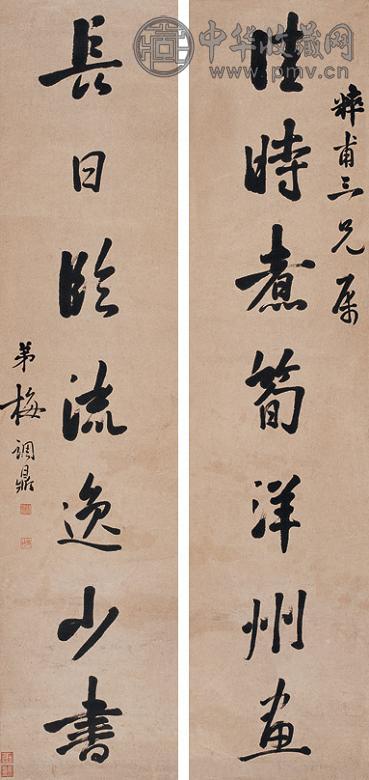 中华收藏网
www.pmv.cn
粹甫三兄属
佳時煮筍洋州畫
長日臨流逸少書
弟梅調鼎